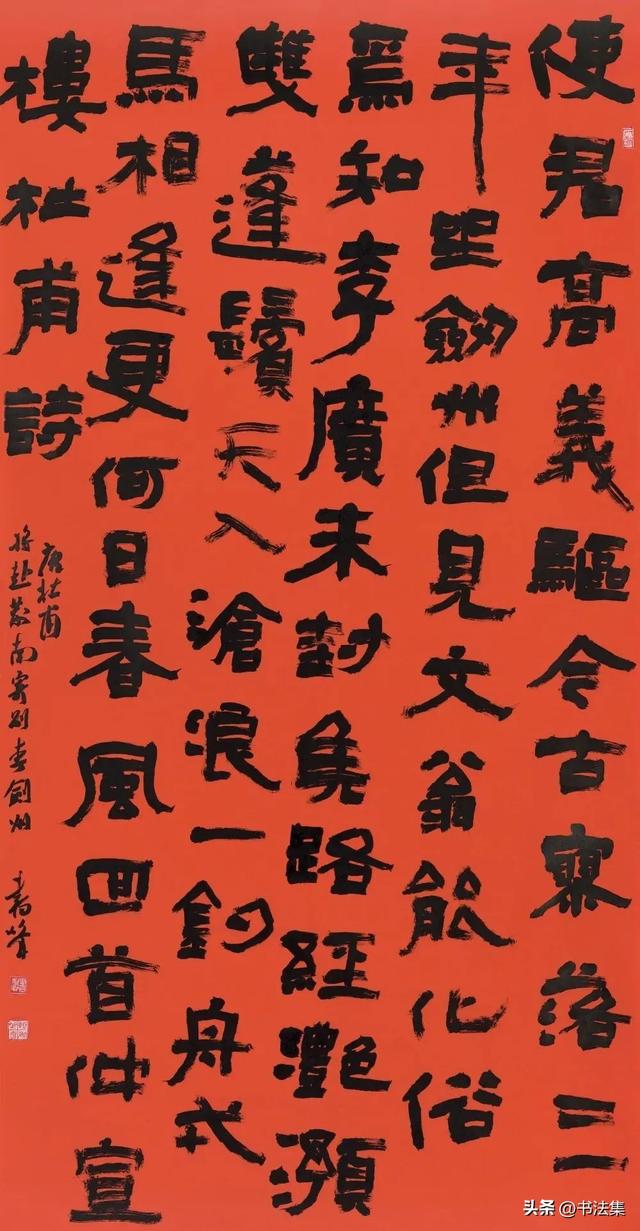 使君高義驅今古寥落三
年坐劔州但見文翁能化俗
焉知李廣未封矦路經灧澦
雙蓬鬢天入滄浪一釣舟戎
馬相逢更何日春風回首仲宣
樓杜甫詩
唐杜甫
将赴荆南寄别李劍州
头条 @书法集